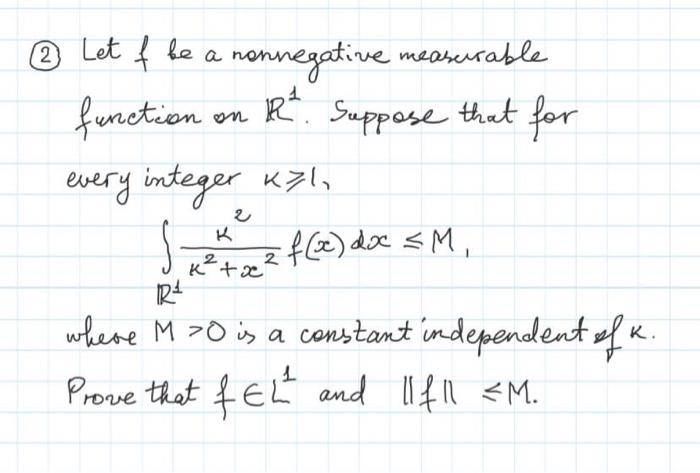 ② Let f be a nonnegative measurable
function on ℝ¹. Suppose that for
every integer κ ⩾ 1,
∫_{ℝ¹} κ²/(κ²+x²) f(x) dx ≤ M,
where M > 0 is a constant independent of κ.
Prove that f ∈ L¹ and ‖f‖ ≤ M.